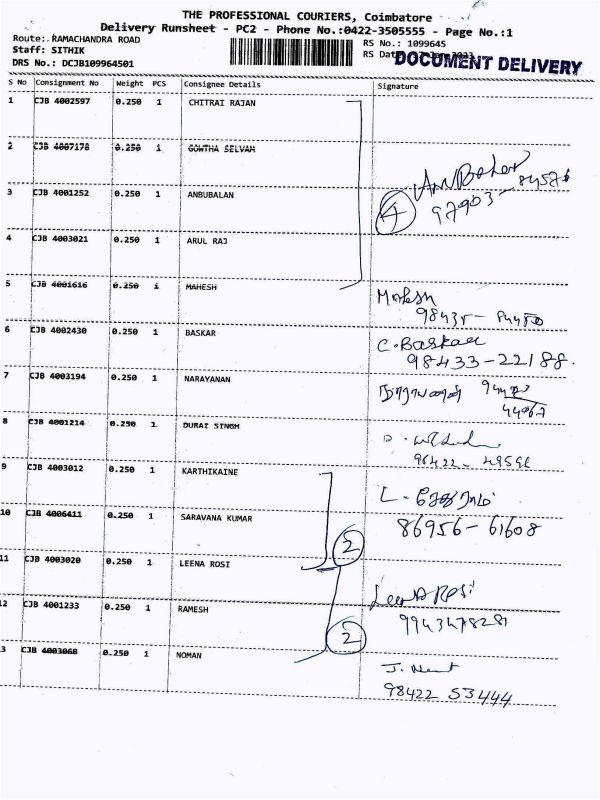 THE PROFESSIONAL COURIERS, Coimbatore
Delivery Runsheet - PC2 - Phone No.:0422-3505555 - Page No.:1
Route:.RAMACHANDRA ROAD RS No.: 1099645
Staff: SITHIK RS Date
DOCUMENT DELIVERY
DRS No.: DCJB109964501
S No Consignment No Weight PCS Consignee Details Signature
1 CJB 4002597 0.250 1 CHITRAI RAJAN
2 CJB 4007178 0.250 1 GOWTHA SELVAM
3 CJB 4001252 0.250 1 ANBUBALAN 4 97903-84576
4 CJB 4003021 0.250 1 ARUL RAJ
5 CJB 4001616 0.250 1 MAHESH Mahesh
98435-
6 CJB 4002430 0.250 1 BASKAR C.Baskar
98433-22188.
7 CJB 4003194 0.250 1 NARAYANAN நாராயணன்
8 CJB 4001214 0.250 1 DURAI SINGH
96422-49596
9 CJB 4003012 0.250 1 KARTHIKAINE
10 CJB 4006411 0.250 1 SARAVANA KUMAR 86956-61608
2
11 CJB 4003020 0.250 1 LEENA ROSI Leena Rosi
12 CJB 4001233 0.250 1 RAMESH 9943478281
2
3 CJB 4003068 0.250 1 NOMAN
98422 53444